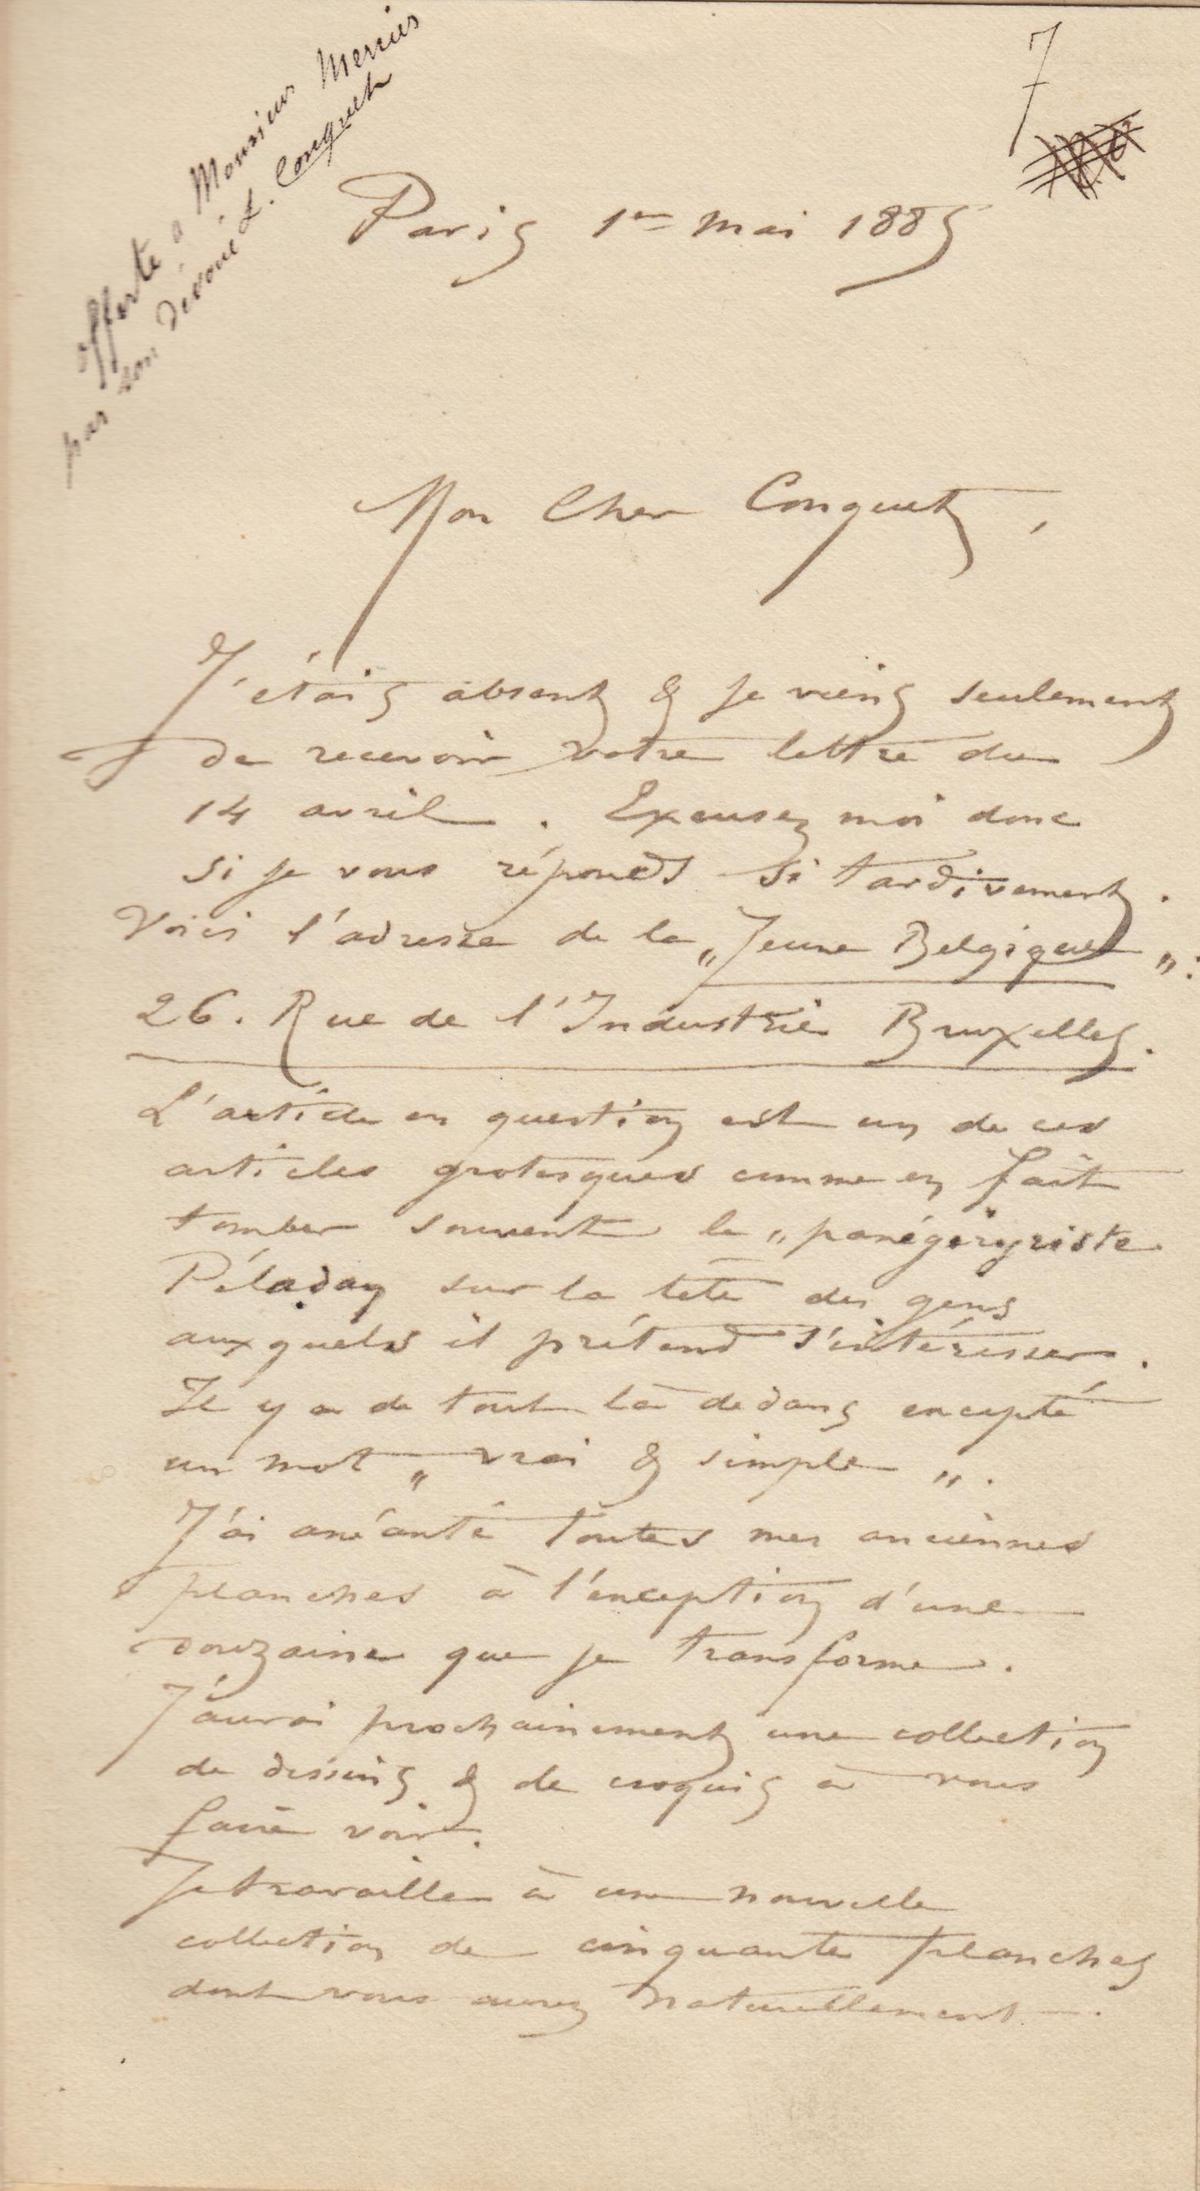 offerte à Monsieur
par son dévoué L. Conquet
7
Paris 1er mai 1885
Mon Cher Conquet,
J'étais absent & je viens seulement
de recevoir votre lettre du
14 avril. Excusez moi donc
si je vous réponds si tardivement.
Voici l'adresse de la „Jeune Belgique„:
26. Rue de l'Industrie Bruxelles.
L'article en question est un de ces
articles grotesques comme en fait
tomber souvent le „panégéryriste
Péladan sur la tête des gens
auxquels il prétend s'intéresser.
Il y a de tout là dedans excepté
un mot „vrai & simple„.
J'ai anéanti toutes mes anciennes
planches à l'exception d'une
douzaine que je transforme.
J'aurai prochainement une collection
de dessins & de croquis à vous
faire voir.
Je travaille à une nouvelle
collection de cinquante planches
dont vous aurez naturellement.